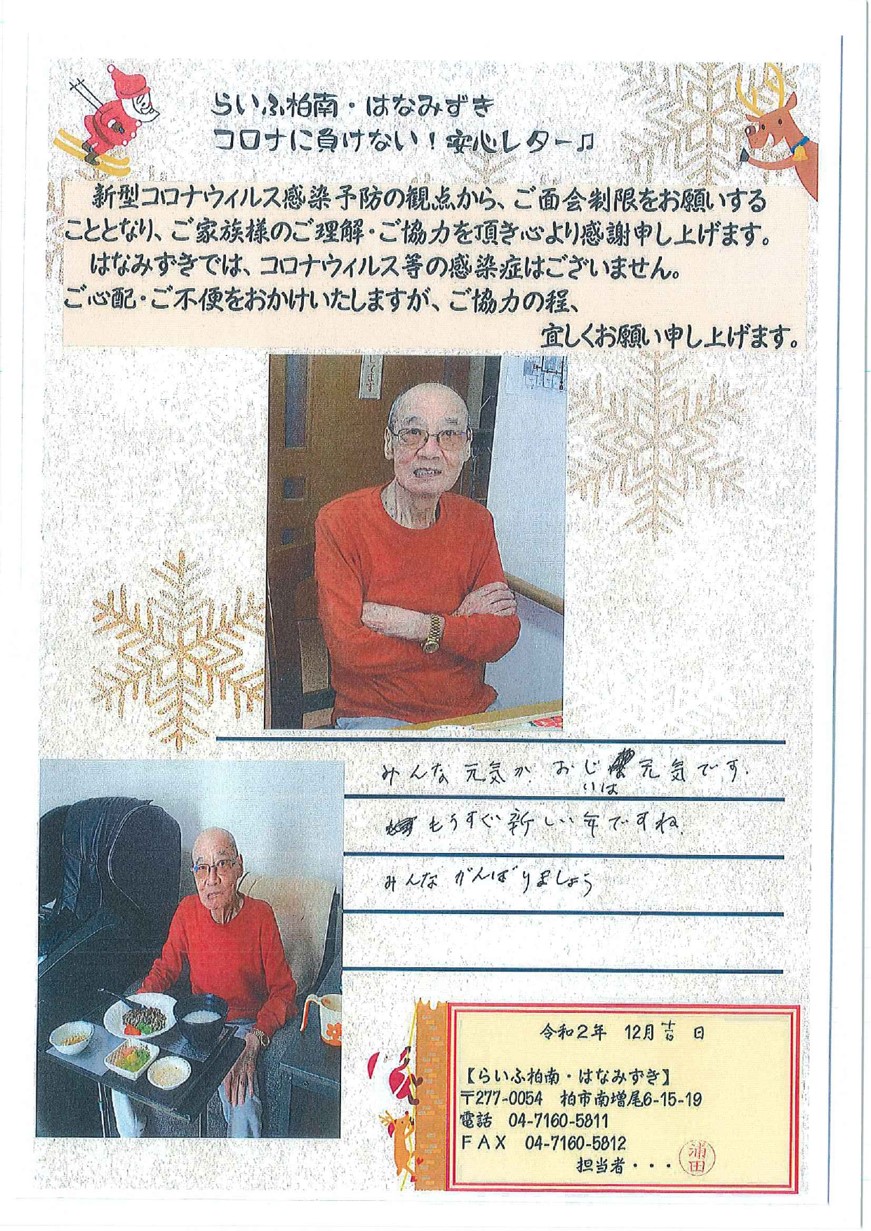 らいふ柏南・はなみずき
コロナに負けない！安心レター♫
新型コロナウィルス感染予防の観点から、ご面会制限をお願いする
こととなり、ご家族様のご理解・ご協力を頂き心より感謝申し上げます。
はなみずきでは、コロナウィルス等の感染症はございません。
ご心配・ご不便をおかけいたしますが、ご協力の程、
宜しくお願い申し上げます。
てます
みんな元気か おじいは元気です.
もうすぐ新しい年ですね.
みんながんばりましょう
令和2年 12月 吉 日
【らいふ柏南・はなみずき】
〒277-0054 柏市南増尾6-15-19
電話 04-7160-5811
ＦＡＸ 04-7160-5812
担当者・・・ 浦田